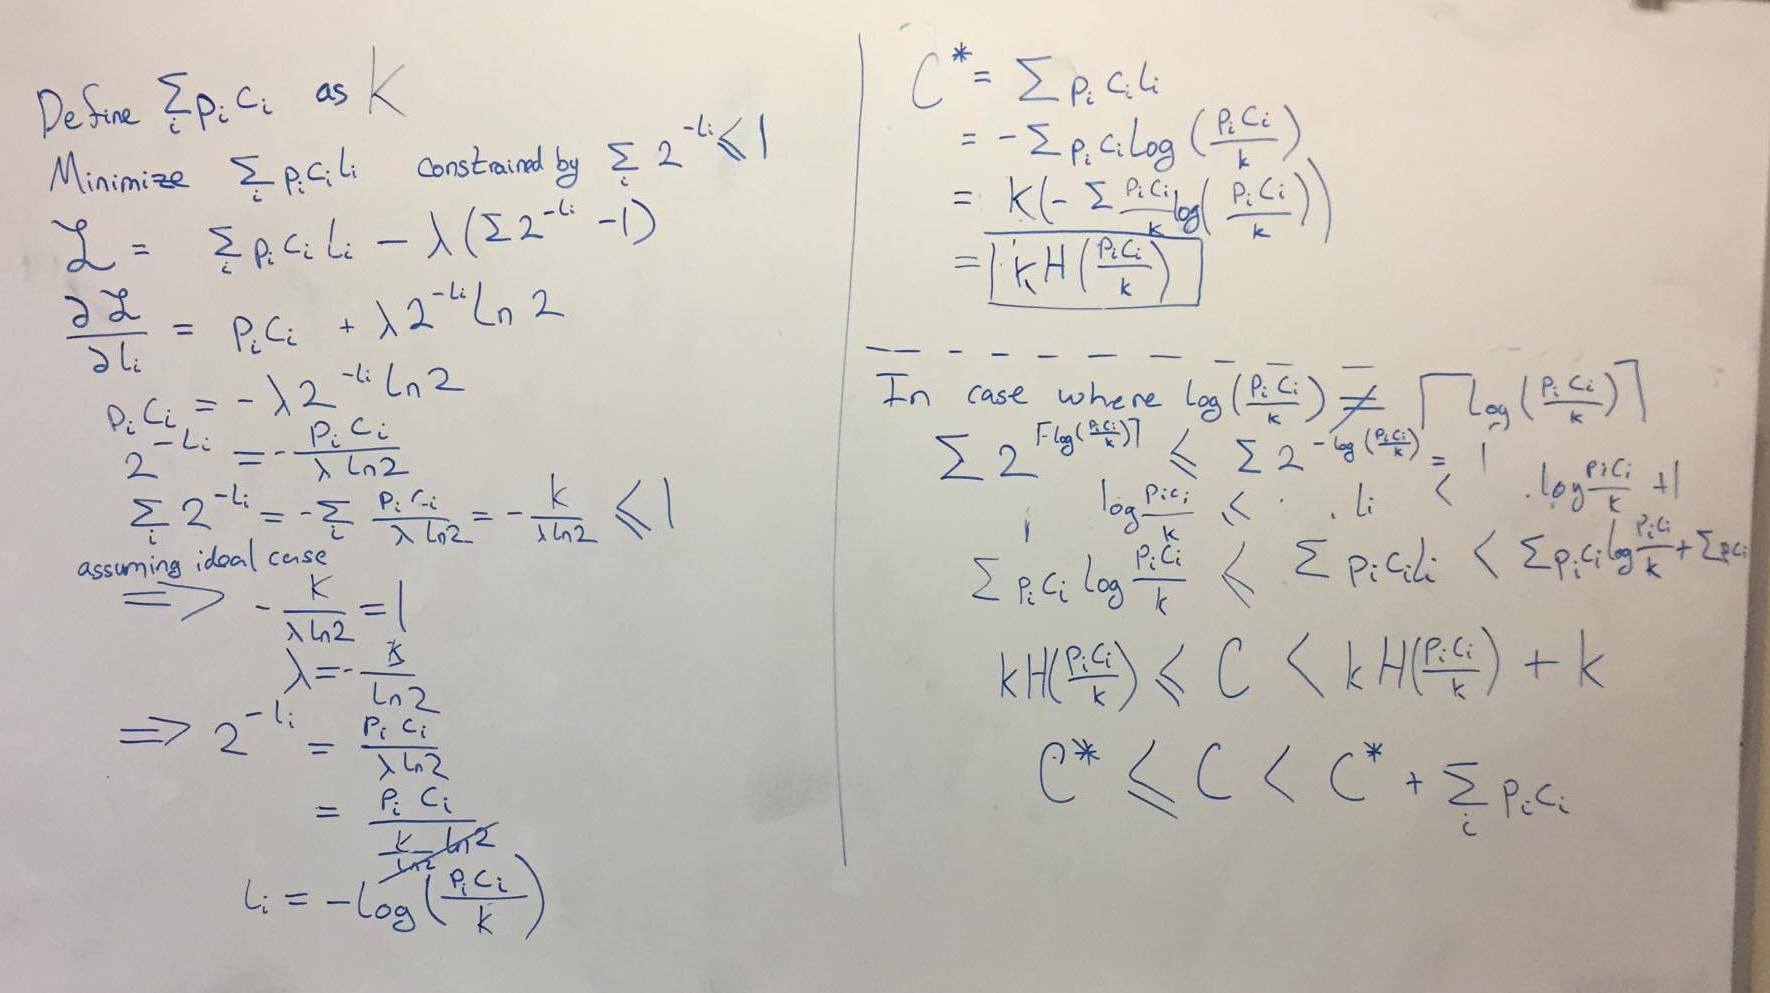 Define Σ_i p_i c_i as K
Minimize Σ_i p_i c_i l_i constrained by Σ_i 2^{-l_i} ≤ 1
ℒ = Σ_i p_i c_i l_i - λ(Σ 2^{-l_i} - 1)
∂ℒ/∂l_i = p_i c_i + λ 2^{-l_i} ln 2
p_i c_i = -λ 2^{-l_i} ln 2
2^{-l_i} = - p_i c_i / λ ln 2
Σ_i 2^{-l_i} = -Σ_i p_i c_i / λ ln 2 = - k / λ ln 2 ≤ 1
assuming ideal case
⇒ - k / λ ln 2 = 1
λ = - k / ln 2
⇒ 2^{-l_i} = p_i c_i / λ ln 2
= p_i c_i / (k / ln 2) ln 2
l_i = -log(p_i c_i / k)
C* = Σ p_i c_i l_i
= -Σ p_i c_i log(p_i c_i / k)
= k(-Σ p_i c_i / k log(p_i c_i / k))
= k H(p_i c_i / k)
In case where log(p_i c_i / k) ≠ ⌈log(p_i c_i / k)⌉
Σ 2^{⌈-log(p_i c_i / k)⌉} ≤ Σ 2^{-log(p_i c_i / k)} = 1
log p_i c_i / k ≤ l_i < log p_i c_i / k + 1
Σ p_i c_i log p_i c_i / k ≤ Σ p_i c_i l_i < Σ p_i c_i log p_i c_i / k + Σ p_i c_i
k H(p_i c_i / k) ≤ C < k H(p_i c_i / k) + k
C* ≤ C < C* + Σ_i p_i c_i